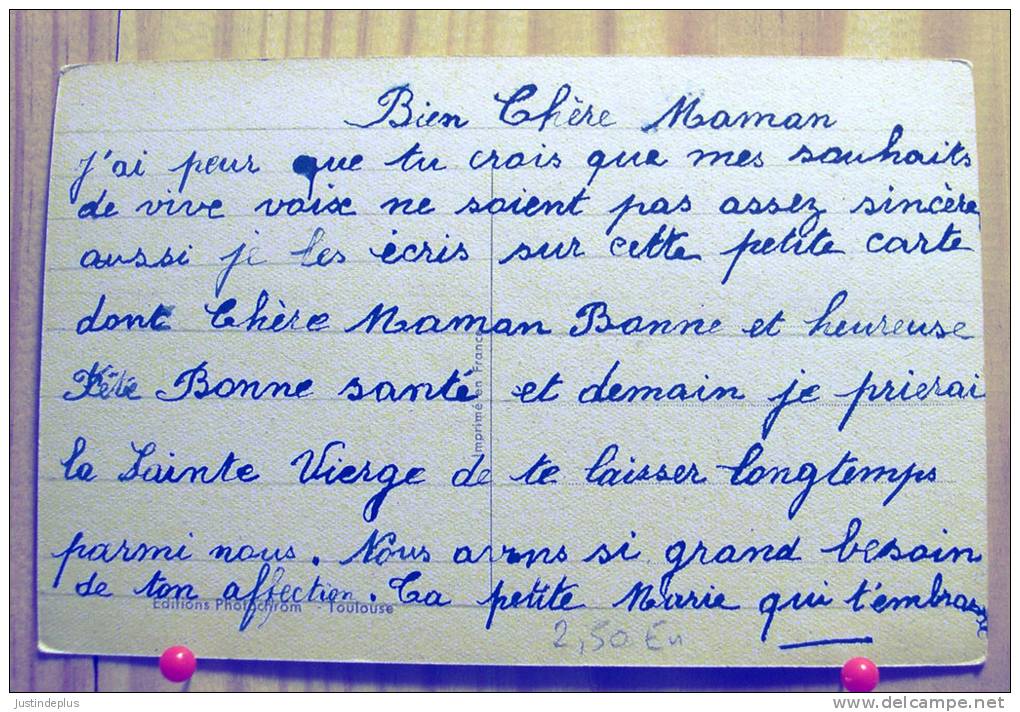 Bien Chère Maman
J'ai peur que tu crois que mes souhaits
de vive voix ne soient pas assez sincère
aussi je les écris sur cette petite carte
dont Chère Maman Bonne et heureuse
Fête Bonne santé et demain je prierai
la Sainte Vierge de te laisser longtemps
parmi nous. Nous avons si grand besoin
de ton affection. Ta petite Marie qui t'embrasse
Imprimé en France
Editions Photochrom - Toulouse
2,50 Eu
justindeplus
www.delcampe.net